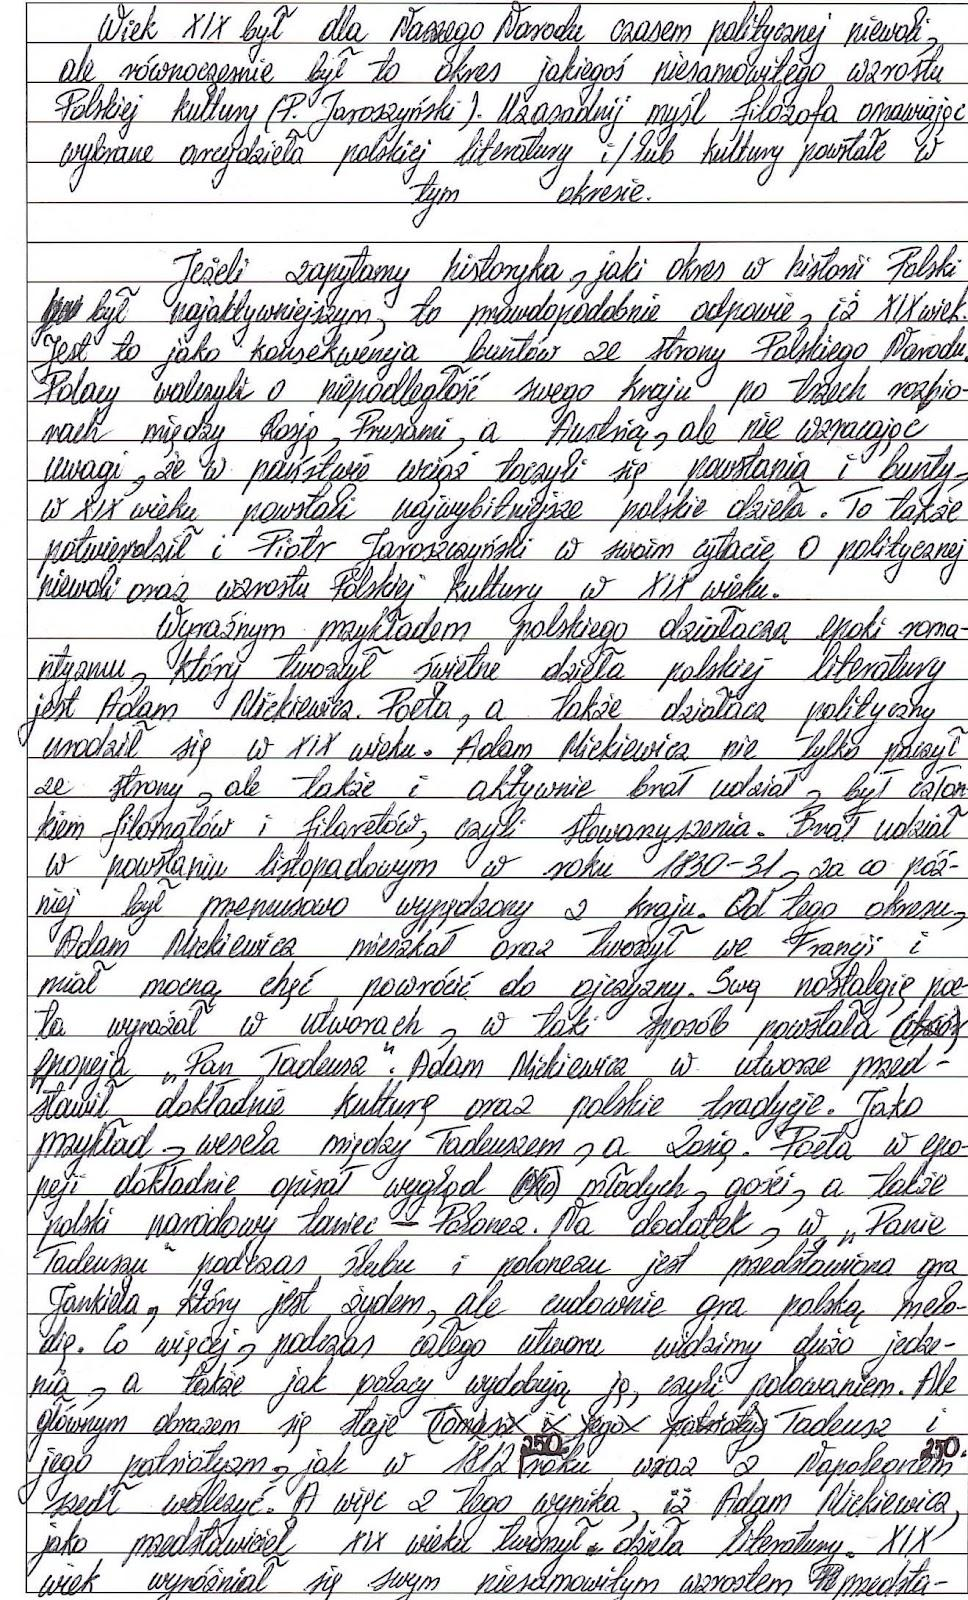 Wiek XIX był dla Naszego Narodu czasem politycznej niewoli,
ale równocześnie był to okres jakiegoś niesamowitego wzrostu
Polskiej kultury (P. Jaroszyński). Uzasadnij myśl filozofa omawiając
wybrane arcydzieła polskiej literatury i/lub kultury powstałe w
tym okresie.
Jeżeli zapytamy historyka, jaki okres w historii Polski
był najaktywniejszym, to prawdopodobnie odpowie, iż XIX wiek.
Jest to jako konsekwencja buntów ze strony Polskiego Narodu.
Polacy walczyli o niepodległość swego kraju po trzech rozbio-
rach między Rosją, Prusami, a Austrią, ale nie wzracając
uwagi, że w państwie wciąż toczyli się powstania i bunty,
w XIX wieku powstali najwybitniejsze polskie dzieła. To także
potwierdził i Piotr Jaroszczyński w swoim cytacie o politycznej
niewoli oraz wzrostu Polskiej Kultury w XIX wieku.
Wyraźnym przykładem polskiego działacza epoki roma-
ntyzmu, który tworzył świetne dzieła polskiej literatury
jest Adam Mickiewicz. Poeta, a także działacz polityczny
urodził się w XIX wieku. Adam Mickiewicz nie tylko patrzył
ze strony, ale także i aktywnie brał udział, był człon-
kiem filomatów i filaretów, czyli stowarzyszenia. Brał udział
w powstaniu listopadowym w roku 1830-31, za co póź-
niej był premusowo wypędzony z kraju. Od tego okresu,
Adam Mickiewicz mieszkał oraz tworzył we Francji i
miał mocną chęć powrócić do ojczyzny. Swą nostalgię poe-
ta wyrażał w utworach, w taki sposób powstała
epopeja „Pan Tadeusz". Adam Mickiewicz w utworze przed-
stawił dokładnie kulturę oraz polskie tradycje. Jako
przykład, wesela między Tadeuszem, a Zosią. Poeta w epo-
peji dokładnie opisał wygląd młodych, gości, a także
polski narodowy taniec – Polonez. Na dodatek, w „Panie
Tadeuszu" podczas ślubu i polonezu jest przedstawiona gra
Jankiela, który jest żydem, ale cudownie gra polską melo-
dię. Co więcej, podczas całego utworu widzimy dużo jedze-
nia, a także jak polacy wydobują ję, czyli polowaniem. Ale
głównym obrazem się staje Tadeusz i
jego patriotyzm, jak w 1812 roku wraz z Napoleonem
250. 250.
szedł walczyć. A więc z tego wynika, iż Adam Mickiewicz,
jako przedstawiciel XIX wieku tworzył dzieła literatury. XIX
wiek wyróżniał się swym niesamowitym wzrostem przedsta-